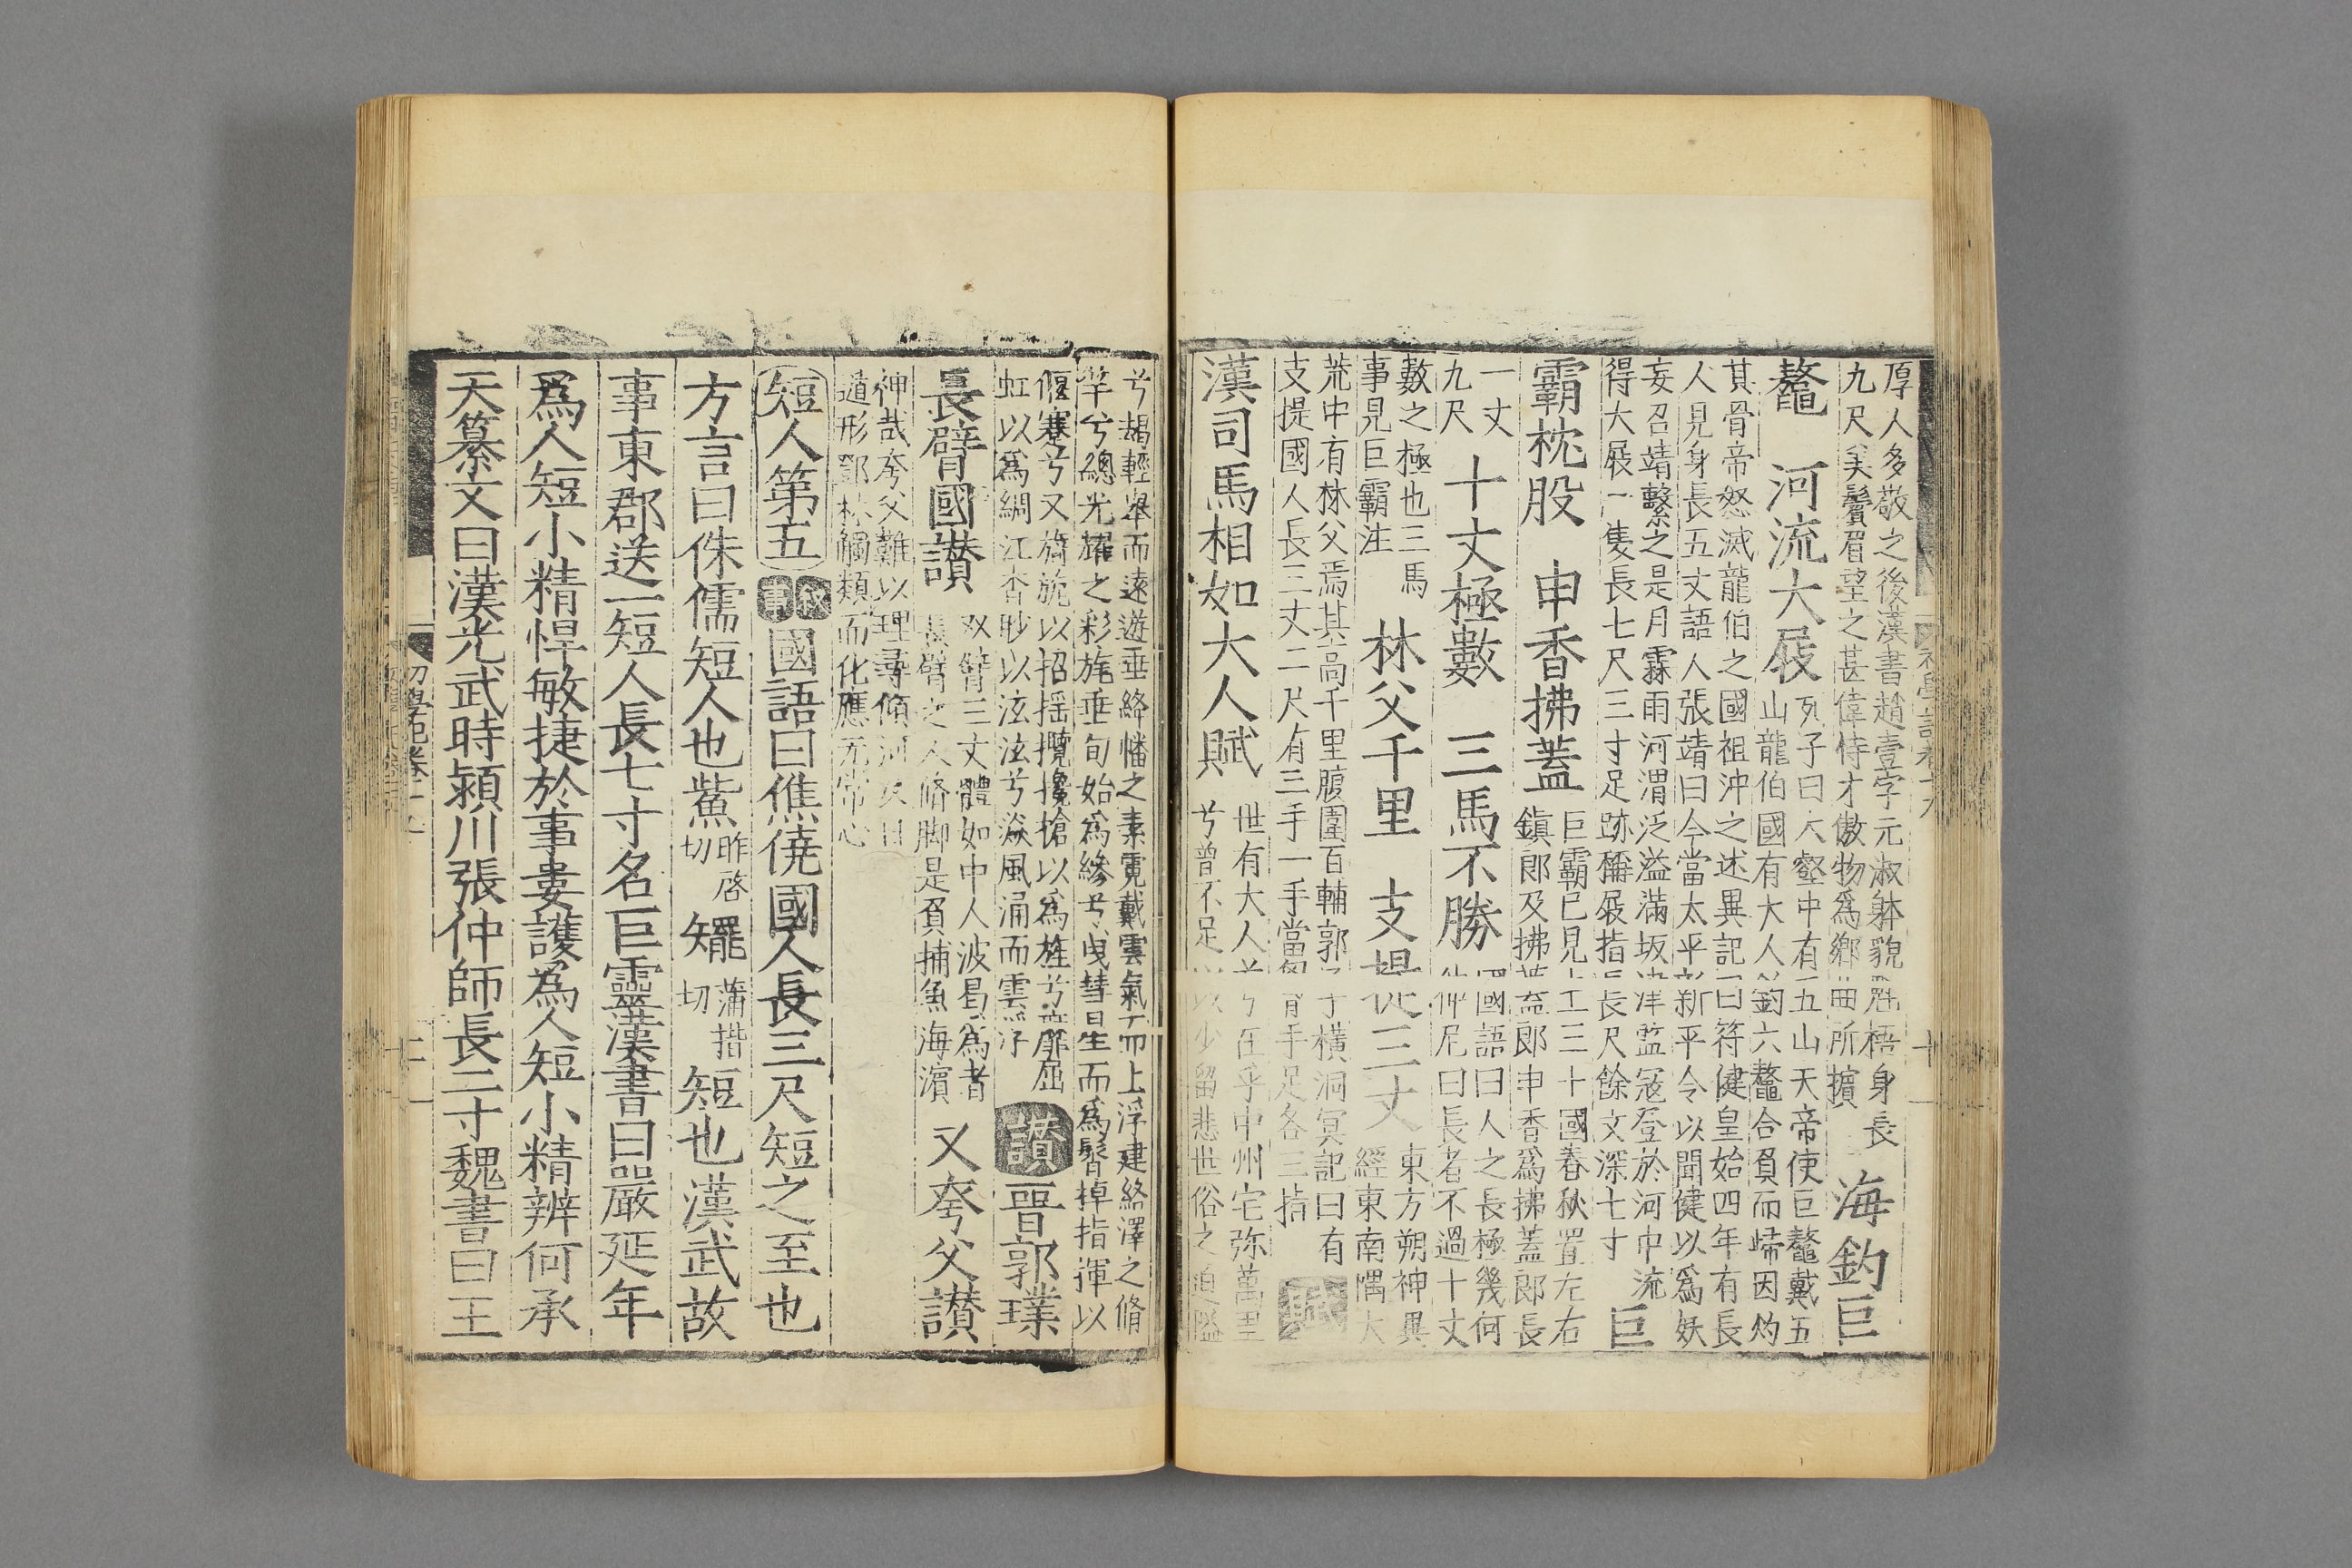 厚人多敬之後漢書趙壹字元淑躰貌魁梧身長
九尺美鬢眉望之甚偉恃才傲物爲鄉曲所擯
海釣巨
鼇 河流大屐
列子曰大壑中有五山天帝使巨鼇戴五
山龍伯國有大人釣六鼇合負而歸因灼
其骨帝怒滅龍伯之國祖沖之述異記曰符健皇始四年有長
人見身長五丈語人張靖曰今當太平新平令以聞健以爲妖
妄召靖繫之是月霖雨河渭泛溢滿坂津監寇登於河中流
得大屐一隻長七尺三寸足跡稱屐指長尺餘文深七寸
巨
霸枕股 申香拂蓋
巨霸已見上三十國春秋置左右
鎮郎及拂蓋郎申香爲拂蓋郎長
一丈
九尺
十丈極數 三馬不勝
國語曰人之長極幾何
仲尼曰長者不過十丈
數之極也三馬
事見巨霸注
林父千里 支提三丈
東方朔神異
經東南隅大
荒中有林父焉其高千里腹圍百輔郭子橫洞冥記曰有
支提國人長三丈二尺有三手一手當胷手足各三指
賦
漢司馬相如大人賦
世有大人兮在乎中州宅弥萬里
兮曾不足以少留悲世俗之迫隘
兮朅輕舉而遠遊垂絳幡之素霓戴雲氣而上浮建絡澤之脩
竿兮總光耀之彩旄垂旬始爲幓兮曳彗星而爲髾掉指揮以
偃蹇兮又旖旎以招摇攬攙搶以爲旌兮靡屈
虹以爲綢江杳眇以泫泫兮猋風涌而雲浮
讃
晉郭璞
長臂國讃
双臂三丈體如中人波曷爲者
長臂之人脩脚是負捕魚海濱
又夸父讃
神哉夸父難以理尋傾河及日
遁形鄧林觸類而化應无常心
短人第五
叙事
國語曰僬僥國人長三尺短之至也
方言曰侏儒短人也鮆
昨啓
切
䎱
蒲揩
切
短也漢武故
事東郡送一短人長七寸名巨靈漢書曰嚴延年
爲人短小精悍敏捷於事婁護爲人短小精辨何承
天纂文曰漢光武時潁川張仲師長二寸魏書曰王